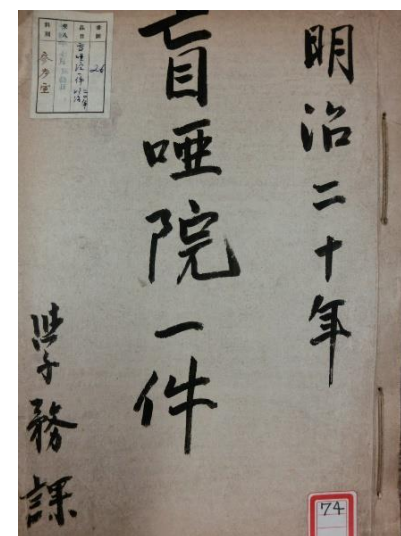 明治二十年
盲唖院一件
学務課
26
参考室
74